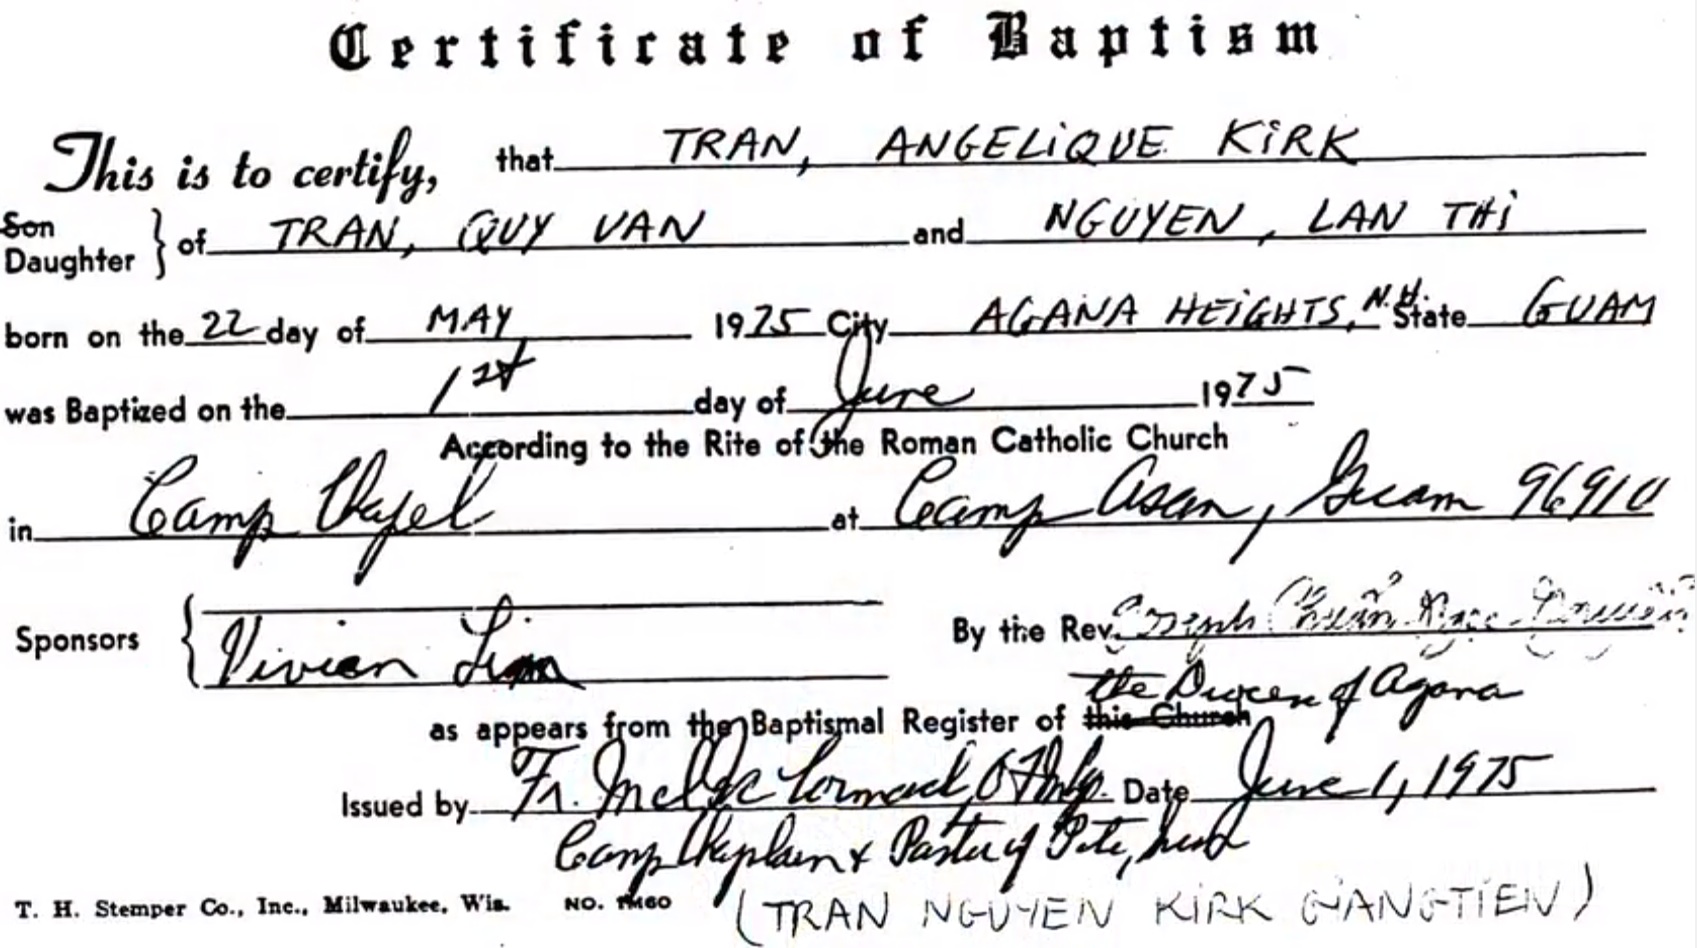 Certificate of Baptism
This is to certify, that TRAN, ANGELiQUE KiRK
Son
Daughter } of TRAN, QUY VAN and NGUYEN, LAN THi
born on the 22 day of MAY 1975 City AGANA HEiGHTS, N.H. State GUAM
was Baptized on the 1st day of June 1975
According to the Rite of the Roman Catholic Church
in Camp Chapel at Camp Asan, Guam 96910
Sponsors { Vivian By the Rev. Joseph
the Diocese of Agana
as appears from the Baptismal Register of this Church
Issued by Fr. Mel Mc Cormack, Date June 1, 1975
Camp Chaplain & Pastor of
T. H. Stemper Co., Inc., Milwaukee, Wis. NO. 1M60 (TRAN NGUYEN KiRK GIANGTIEN)